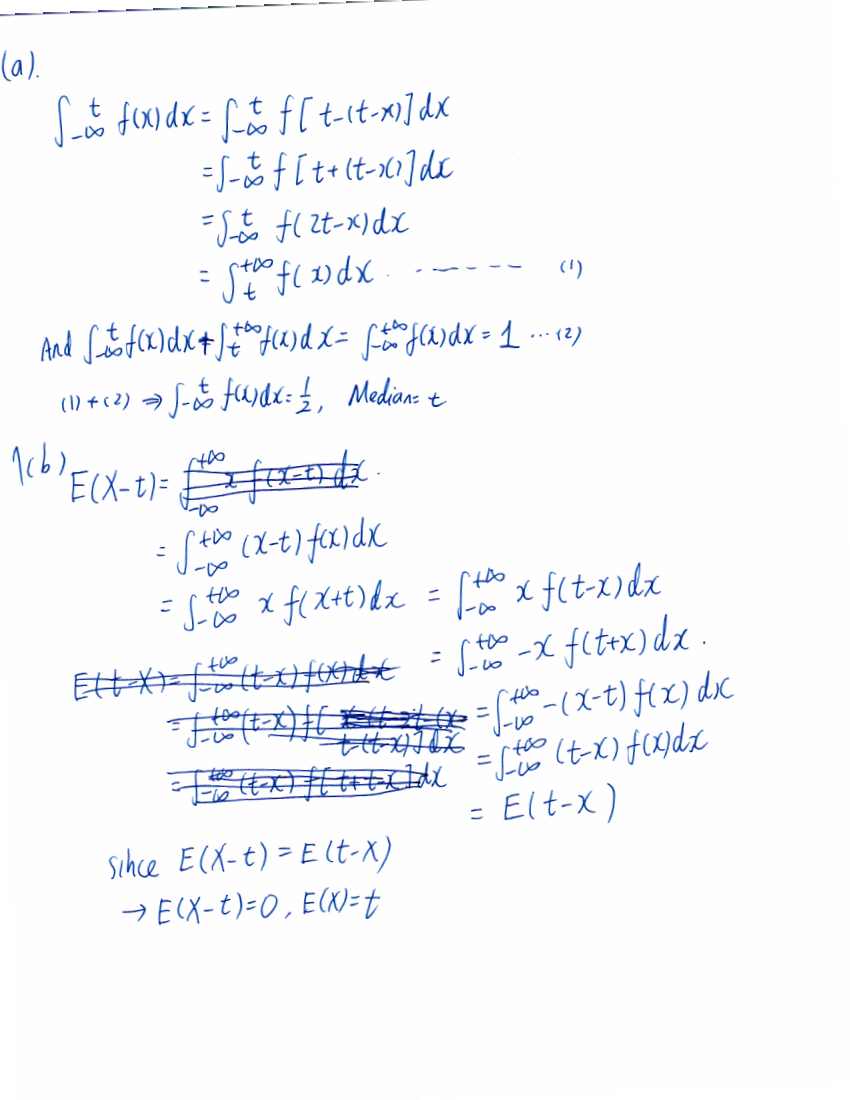 (a).
∫_{-∞}^{t} f(x)dx = ∫_{-∞}^{t} f[t-(t-x)]dx
= ∫_{-∞}^{t} f[t+(t-x)]dx
= ∫_{-∞}^{t} f(2t-x)dx
= ∫_{t}^{+∞} f(x)dx. ------ (1)
And ∫_{-∞}^{t} f(x)dx + ∫_{t}^{+∞} f(x)dx = ∫_{-∞}^{+∞} f(x)dx = 1 ...(2)
(1)+(2) ⇒ ∫_{-∞}^{t} f(x)dx = 1/2, Median = t
1(b)
E(X-t) = ∫_{-∞}^{+∞} x f(x-t) dx.
= ∫_{-∞}^{+∞} (x-t) f(x)dx
= ∫_{-∞}^{+∞} x f(x+t)dx = ∫_{-∞}^{+∞} x f(t-x)dx
= ∫_{-∞}^{+∞} -x f(t+x)dx.
E(t-X) = ∫_{-∞}^{+∞} (t-x) f(x)dx
= ∫_{-∞}^{+∞} -(x-t) f(x)dx
= ∫_{-∞}^{+∞} (t-x) f[
t-(t-x)]dx
= ∫_{-∞}^{+∞} (t-x) f(x)dx
= ∫_{-∞}^{+∞} (t-x) f[t+t-x]dx
= E(t-X)
since E(X-t) = E(t-X)
→ E(X-t)=0, E(X)=t